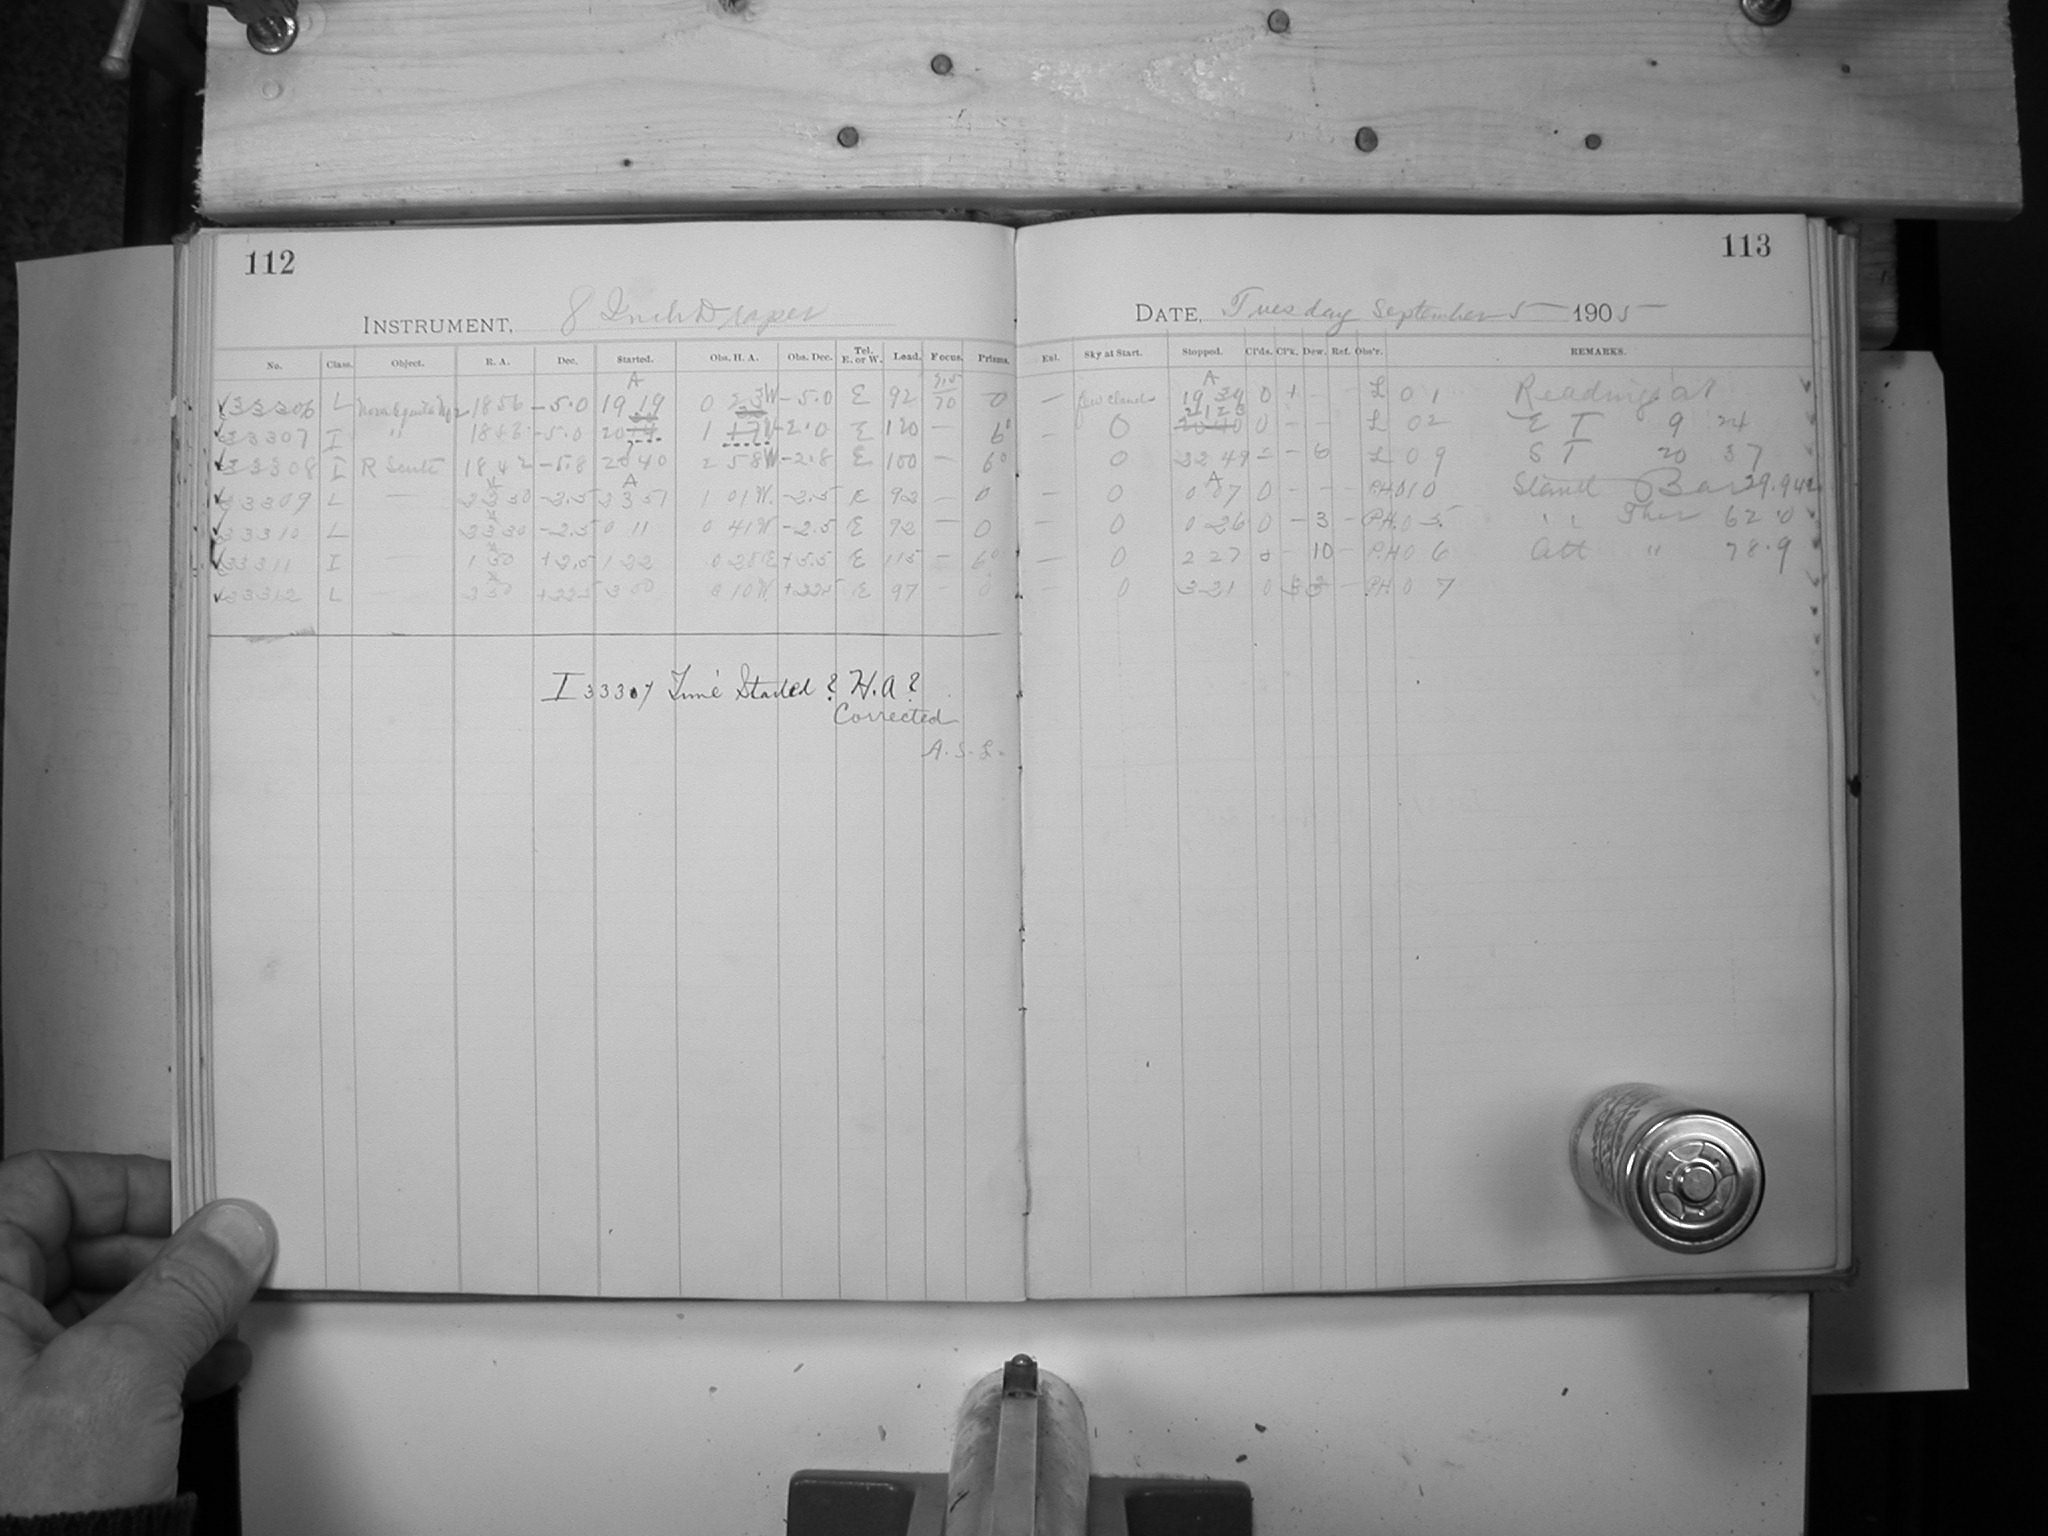 112
INSTRUMENT, 8 Inch Draper
No. Class. Object. R. A. Dec. Started. Obs. H. A. Obs. Dec. Tel. E. or W. Lead. Focus. Prisms.
33306 L Nova Aquila No 2 1856 -5.0 19 19 0 23W -5.0 E 92 70 0
33307 I " 1856 -5.0 20 1 17W E 120 — 6°
33308 I R Scuti 1842 -5.8 20 40 2 58W -2.8 E 100 — 6°
33309 L — -2.5 23 51 1 01W. -2.5 E 92 — 0
33310 L 2330 -2.5 0 11 0 41W -2.5 E 92 — 0
33311 I — 1 50 1 22 0 28E +5.5 E 115 — 6°
33312 L — 2 50 +22.5 3 00 0 10W. +22.5 E 97 — 0
I 33307 Time Started? H.A?
Corrected
A. S. L.
113
DATE, Tuesday September 5 1905
Enl. Sky at Start. Stopped. Cl'ds. Cl'k. Dew. Ref. Obs'r. REMARKS.
— few clouds 19 39 0 1 - L 01 Readings at
— 0 21 23 0 - - L 02 E T 9 24
0 22 49 - - 6 L 09 S T 20 37
— 0 0 07 0 - - - P.H. 010 Stand Bar 29.942
— 0 0 26 0 - 3 - P.H. 0 5 " Ther 62.0
— 0 2 27 0 - 10 - P.H. 0 6 Att " 78.9
— 0 3 21 0 - P.H. 0 7